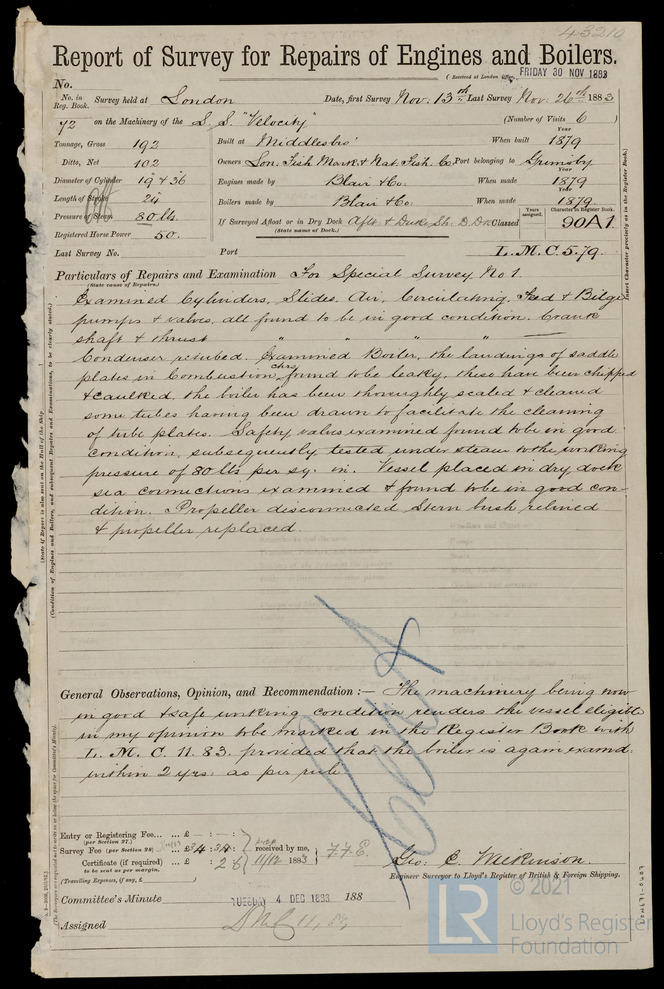 43210
Report of Survey for Repairs of Engines and Boilers.
(Received at London Office, FRIDAY 30 NOV 1883
No.
No. in Reg. Book. Survey held at London Date, first Survey Nov: 13th Last Survey Nov: 26th 1883
72 on the Machinery of the S.S. "Velocity" (Number of Visits 6 )
Tonnage, Gross 192 Built at Middlesbro' When built Year 1879
Ditto, Net 102 Owners Lon. Fish Mark. & Nat. Fish. Co Port belonging to Grimsby
Diameter of Cylinder 19 & 36 Engines made by Blair & Co. When made Year 1879
Length of Stroke 24 Boilers made by Blair & Co. When made Year 1879
Pressure of Steam 80 lbs. If Surveyed Afloat or in Dry Dock Aflt & Duke Sh. D. Dk Classed Years assigned. Character in Register Book. 90A1
(State name of Dock.)
Registered Horse Power 50.
Last Survey No. Port L.M.C. 5.79.
Particulars of Repairs and Examination For Special Survey No 1.
(State cause of Repairs.)
Examined Cylinders, Slides, Air, Circulating, Feed & Bilge
pumps & valves, all found to be in good condition. Crank
shaft & thrust " " " "
Condenser retubed. Examined Boiler, the landings of saddle
plates in Combustion chrs found to be leaky, these have been chipped
& caulked, the boiler has been thoroughly scaled & cleaned
some tubes having been drawn to facilitate the cleaning
of tube plates. Safety valves examined found to be in good
condition, subsequently tested under steam to the working
pressure of 80 lbs per sq. in. Vessel placed in dry dock
sea connections examined & found to be in good con-
dition. Propeller disconnected Stern bush relined
& propeller replaced.
General Observations, Opinion, and Recommendation :— The machinery being now
in good & safe working condition renders the vessel eligible
in my opinion to be marked in the Register Book with
L.M.C. 11.83. provided that the boiler is again examd.
within 2 yrs: as per rule
Entry or Registering Fee... ... £ - : - :
(per Section 27.)
Survey Fee (per Section 28) ... £ received by me,
Certificate (if required) ... : 2 6 11/12 1883
to be sent as per margin.
(Travelling Expenses, if any, £ )
Geo: C. Wilkinson.
Engineer Surveyor to Lloyd's Register of British & Foreign Shipping.
Committee's Minute TUESDAY 4 DEC 1883 188
Assigned LMC 11, 83
LR
© 2021
Lloyd's Register
Foundation